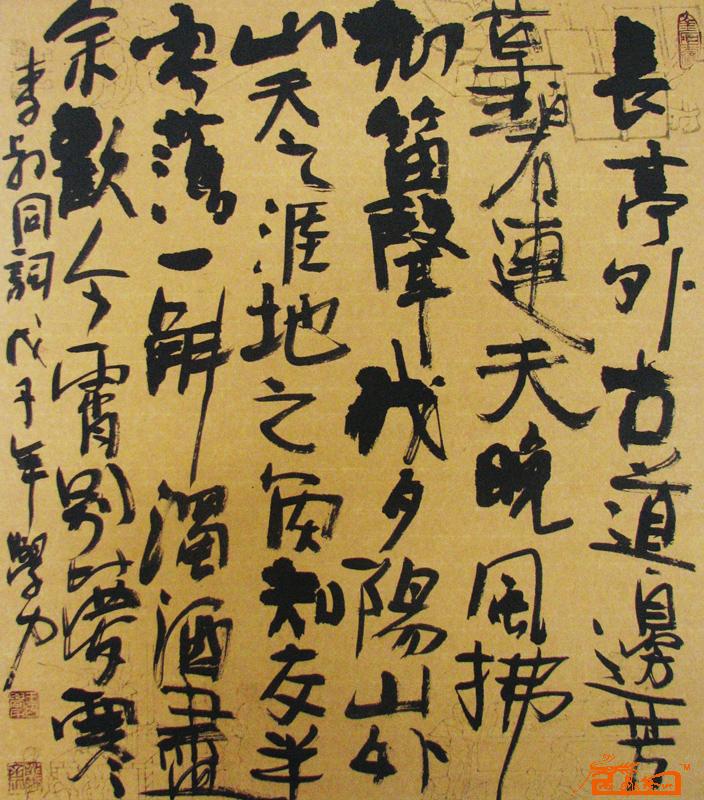 長亭外古道邊芳
草碧連天晚風拂
柳笛聲残夕陽山外
山天之涯地之角知友半
零落一斛濁酒盡
余歡今宵別夢寒
李叔同詞戊子年學力